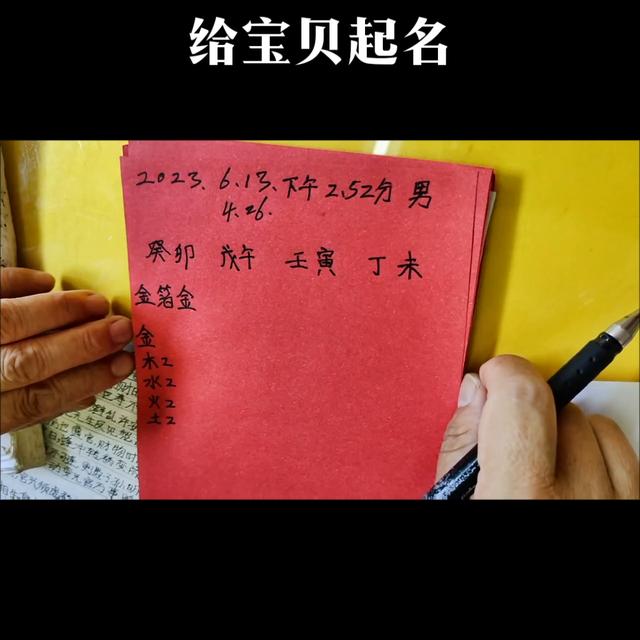 给宝贝起名
2023.6.13.下午2.52分 男
4.26.
癸卯 戊午 壬寅 丁未
金箔金
金
木2
水2
火2
土2